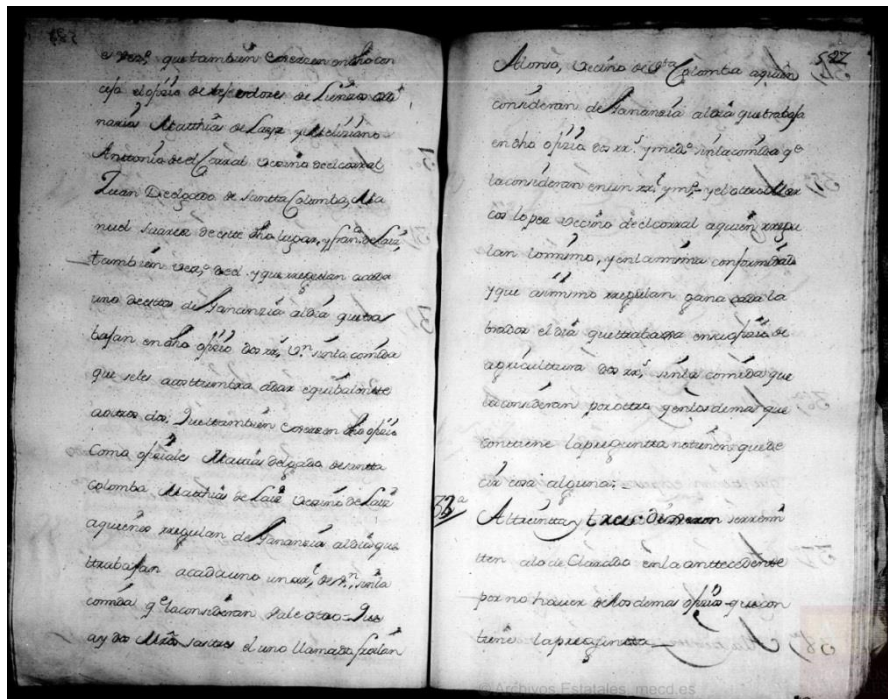 e vez,º que tambien exerzen en dho con
cejo el ofizio de texedores de Lienzo ordi
nario Matthias de Laiz y
Antonio de el Corral vezino de el corral
Juan Delgado de Santta Colomba, Ma
nuel Suarez de este dho lugar, y franº de Laiz,
tambien vez,º de el. y que regulan a cada
uno de estos de Ganancia al dia que tra
bajan en dho ofizio dos rs, Vn. sin la comida
que seles acostumbra a dar equibalente
a otros dos; Que tambien exerzen dho ofizio
Como ofiziales Mathias delgado de santta
colomba Matthias de Laiz vezino de Laiz
a quienes regulan de Ganancia al dia que
ttrabajan a cada uno un rl, de vn, sin la
comida qe la consideran vale otro = Que
ay dos Mros sastres el uno llamado froilan
527
Alonso, vezino de Sta Colomba a quien
consideran de Ganancia al dia que trabaja
en dho ofizio dos rrs. y medº sin la comida qe
la consideran en un rrl y mº = y el otro Mar
cos lopez vezino de el corral a quien rregu
lan lo mismo, y en la misma conformidad
y que asimismo rregulan gana cada la
brador el dia que trabaja en su ofizio de
agricultura dos rrs, sin la comida que
la consideran por otro y en los demas que
contiene la pregunta no tienen que de
cir cosa alguna; =
33ª
A la treinta y tres dixeron se rremi
tten a lo de Clarado en la anttecedente
por no hauer de los demas ofizios que con
tiene la pregunta
Archivos Estatales, mecd.es